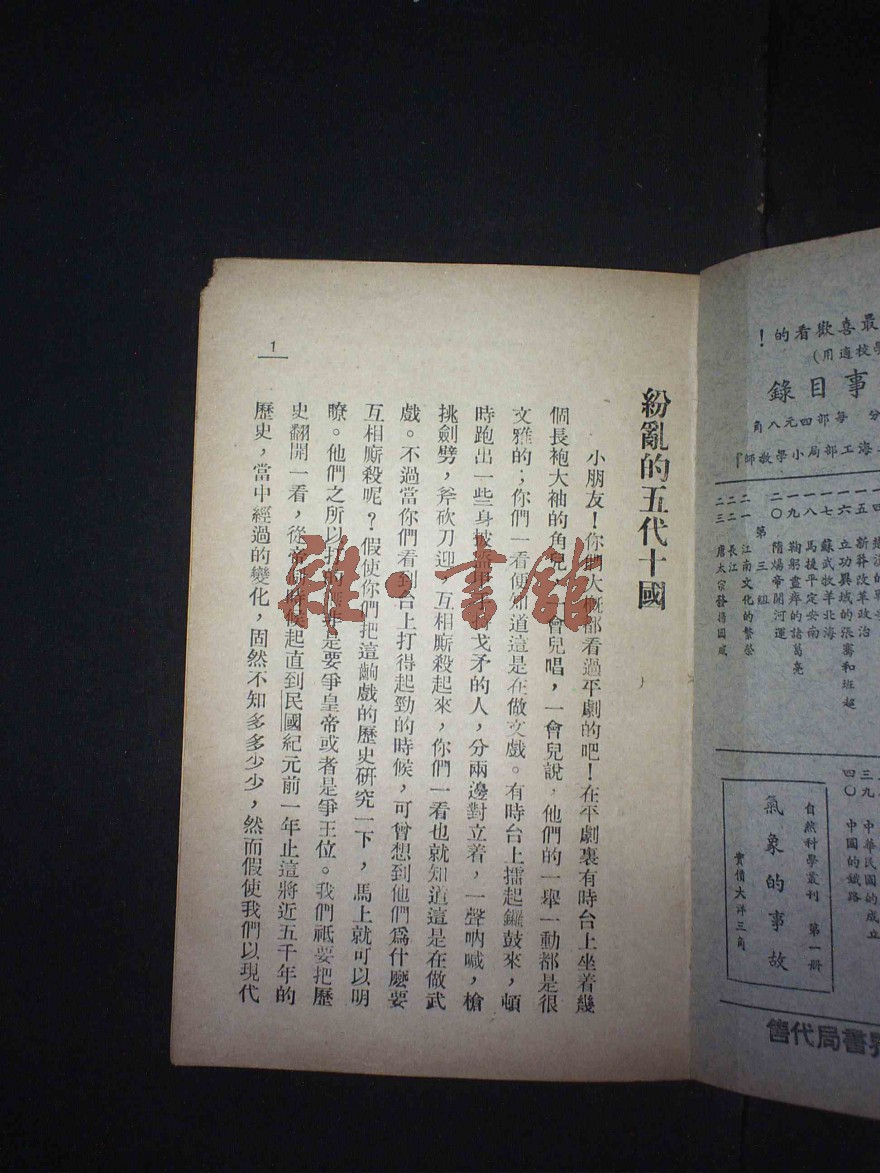 紛亂的五代十國
小朋友！你們大概都看過平劇的吧！在平劇裏有時台上坐着幾
個長袍大袖的角兒，一會兒唱，一會兒說，他們的一舉一動都是很
文雅的；你們一看便知道這是在做文戲。有時台上擂起鑼鼓來，頓
時跑出一些身披盔甲手執戈矛的人，分兩邊對立着，一聲吶喊，槍
挑劍劈，斧砍刀迎，互相廝殺起來，你們一看也就知道這是在做武
戲。不過當你們看到台上打得起勁的時候，可曾想到他們爲什麼要
互相廝殺呢？假使你們把這齣戲的歷史研究一下，馬上就可以明
瞭。他們之所以打的是要爭皇帝或者是爭王位。我們祇要把歷
史翻開一看，從帝時候起直到民國紀元前一年止這將近五千年的
歷史，當中經過的變化，固然不知多多少少，然而假使我們以現代
1
雜·書館
最喜歡看的！
學校適用)
事目錄
分 每部四元八角
海工部局小學敎師
新莽改革政治
一六 立功異域的張騫和班超
一七 蘇武牧羊北海
一八 馬援平定安南
一九 鞠躬盡瘁的諸葛亮
二〇 隋煬帝開河運
第三組
二一 江南文化的繁榮
二二 長江
二三 唐太宗發揚國威
三九 中華民國的成立
四〇 中國的鐵路
自然科學叢刊 第一册
氣象的事故
實價大洋三角
界書局代售